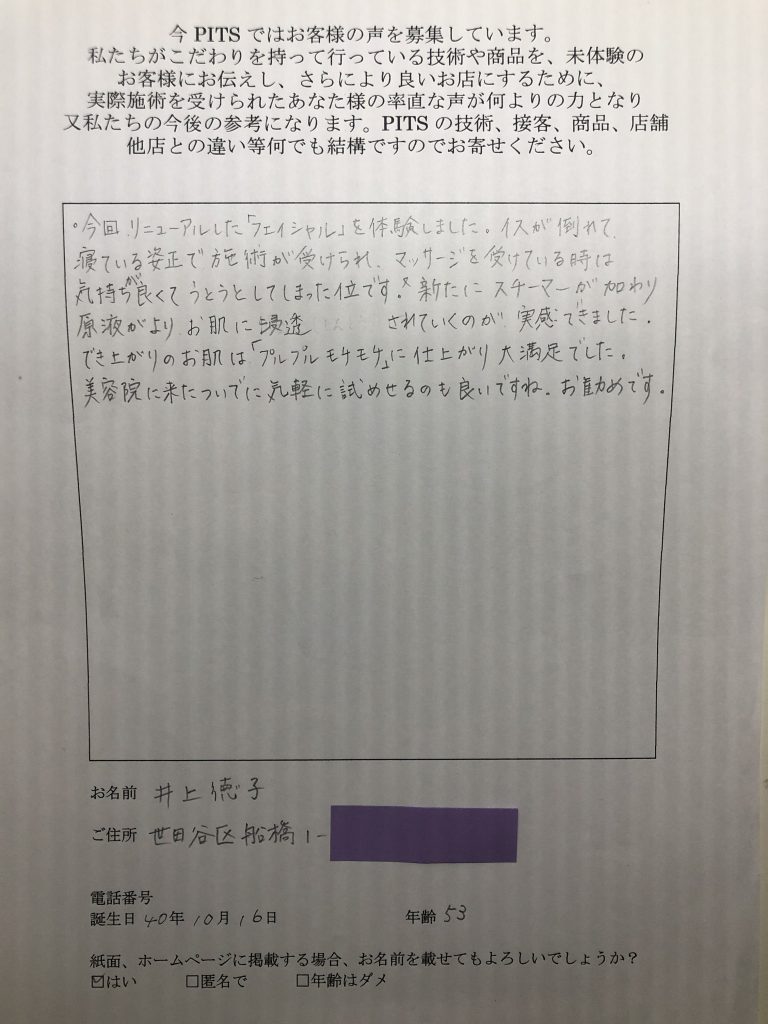 今 PITS ではお客様の声を募集しています。
私たちがこだわりを持って行っている技術や商品を、未体験の
お客様にお伝えし、さらにより良いお店にするために、
実際施術を受けられたあなた様の率直な声が何よりの力となり
又私たちの今後の参考になります。PITS の技術、接客、商品、店舗
他店との違い等何でも結構ですのでお寄せください。
・今回リニューアルした「フェイシャル」を体験しました。イスが倒れて
寝ている姿正で施術が受けられ、マッサージを受けている時は
気持ちが良くてうとうとしてしまった位です。×新たにスチーマーが加わり
原液がよりお肌に浸透 されていくのが実感できました。
でき上がりのお肌は「プルプルモチモチ」に仕上がり大満足でした。
美容院に来たついでに気軽に試めせるのも良いですね。お勧めです。
お名前 井上徳子
ご住所 世田谷区船橋1-
電話番号
誕生日 40年 10月 16日 年齢 53
紙面、ホームページに掲載する場合、お名前を載せてもよろしいでしょうか？
☑はい □匿名で □年齢はダメ